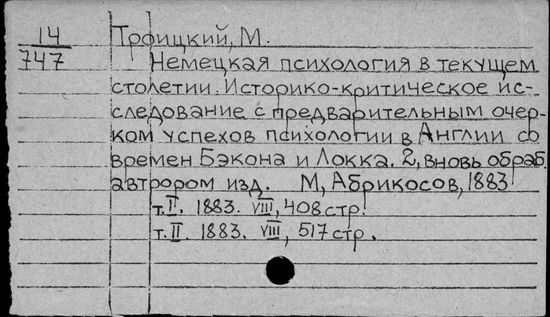 14
747
Троицкий, М.
Немецкая психология в текущем
столетии. Историко-критическое ис-
следование с предварительным очер-
ком успехов психологии в Англии со
времен Бэкона и Локка. 2, вновь обраб.
автрором изд. М, Абрикосов, 1883
т. II. 1883. VIII, 408 стр.
т. II. 1883. VIII, 517 стр.